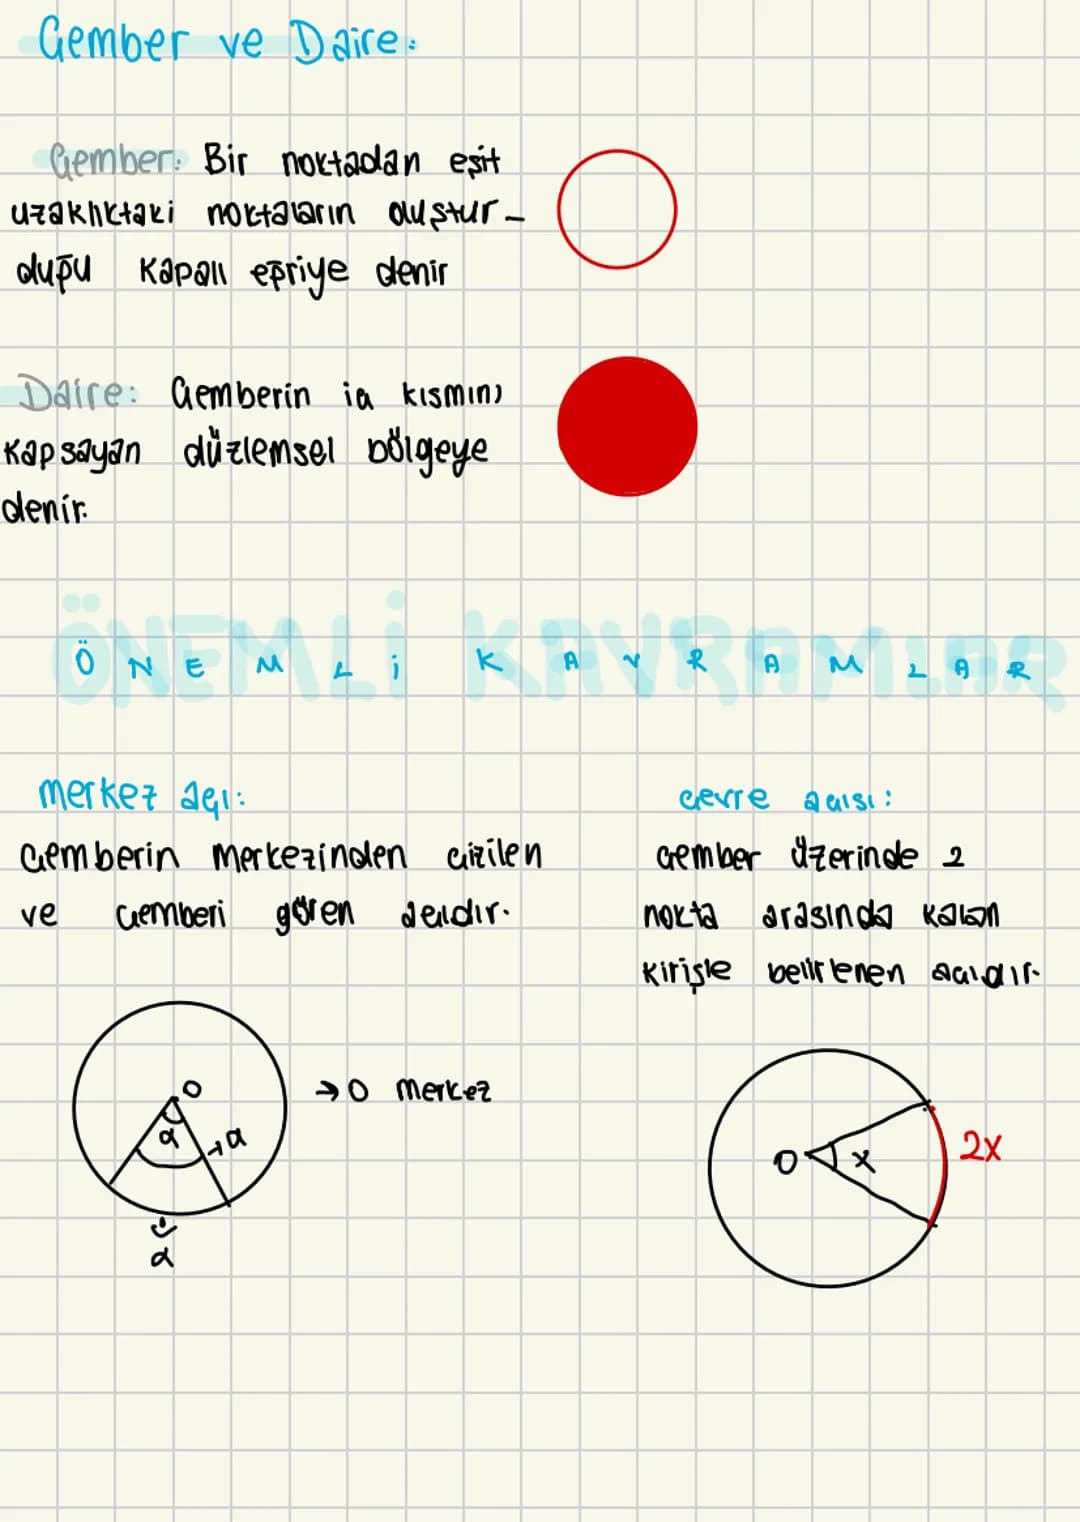 Çember ve Daire:
Çember: Bir noktadan eşit
uzaklıktaki noktaların oluştur-
duğu kapalı eğriye denir
Daire: Çemberin iç kısmını
kapsayan düzlemsel bölgeye
denir.
ÖNEMLİ KAVRAMLAR
merkez açı:
Çemberin merkezinden çizilen
ve çemberi gören açıdır.
O
α
→α
→O merkez
α
çevre açısı:
Çember üzerinde 2
nokta arasında kalan
kirişle belirlenen açıdır.
O
x
2x